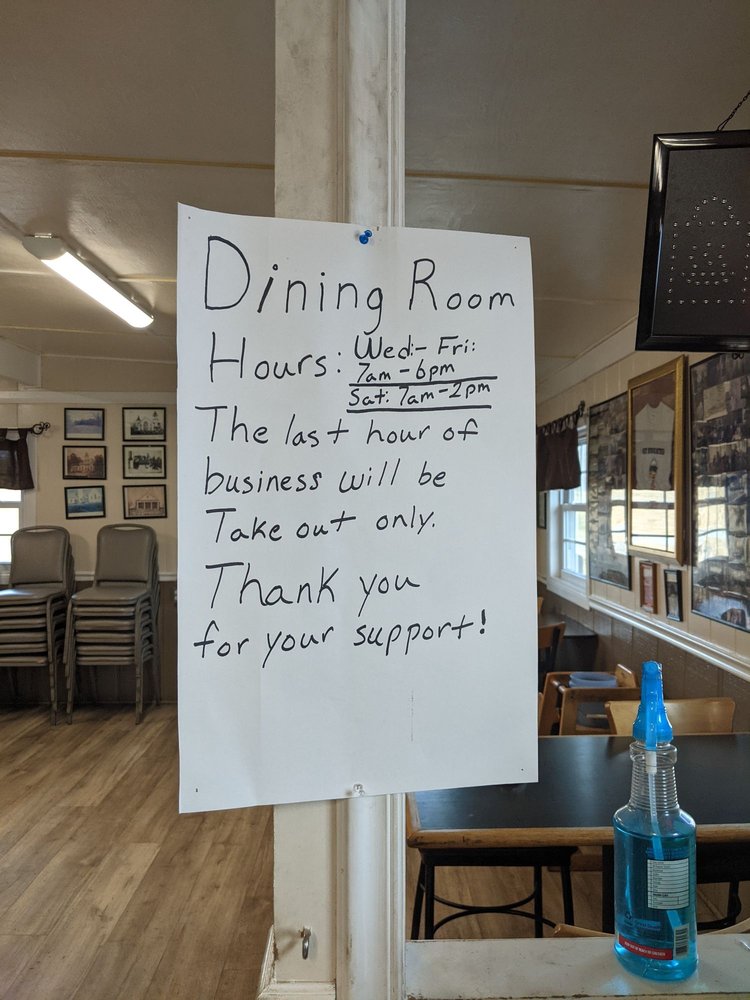 Dining Room
Hours: Wed:- Fri:
7am - 6pm
Sat: 7am - 2pm
The last hour of
business will be
Take out only.
Thank you
for your support!